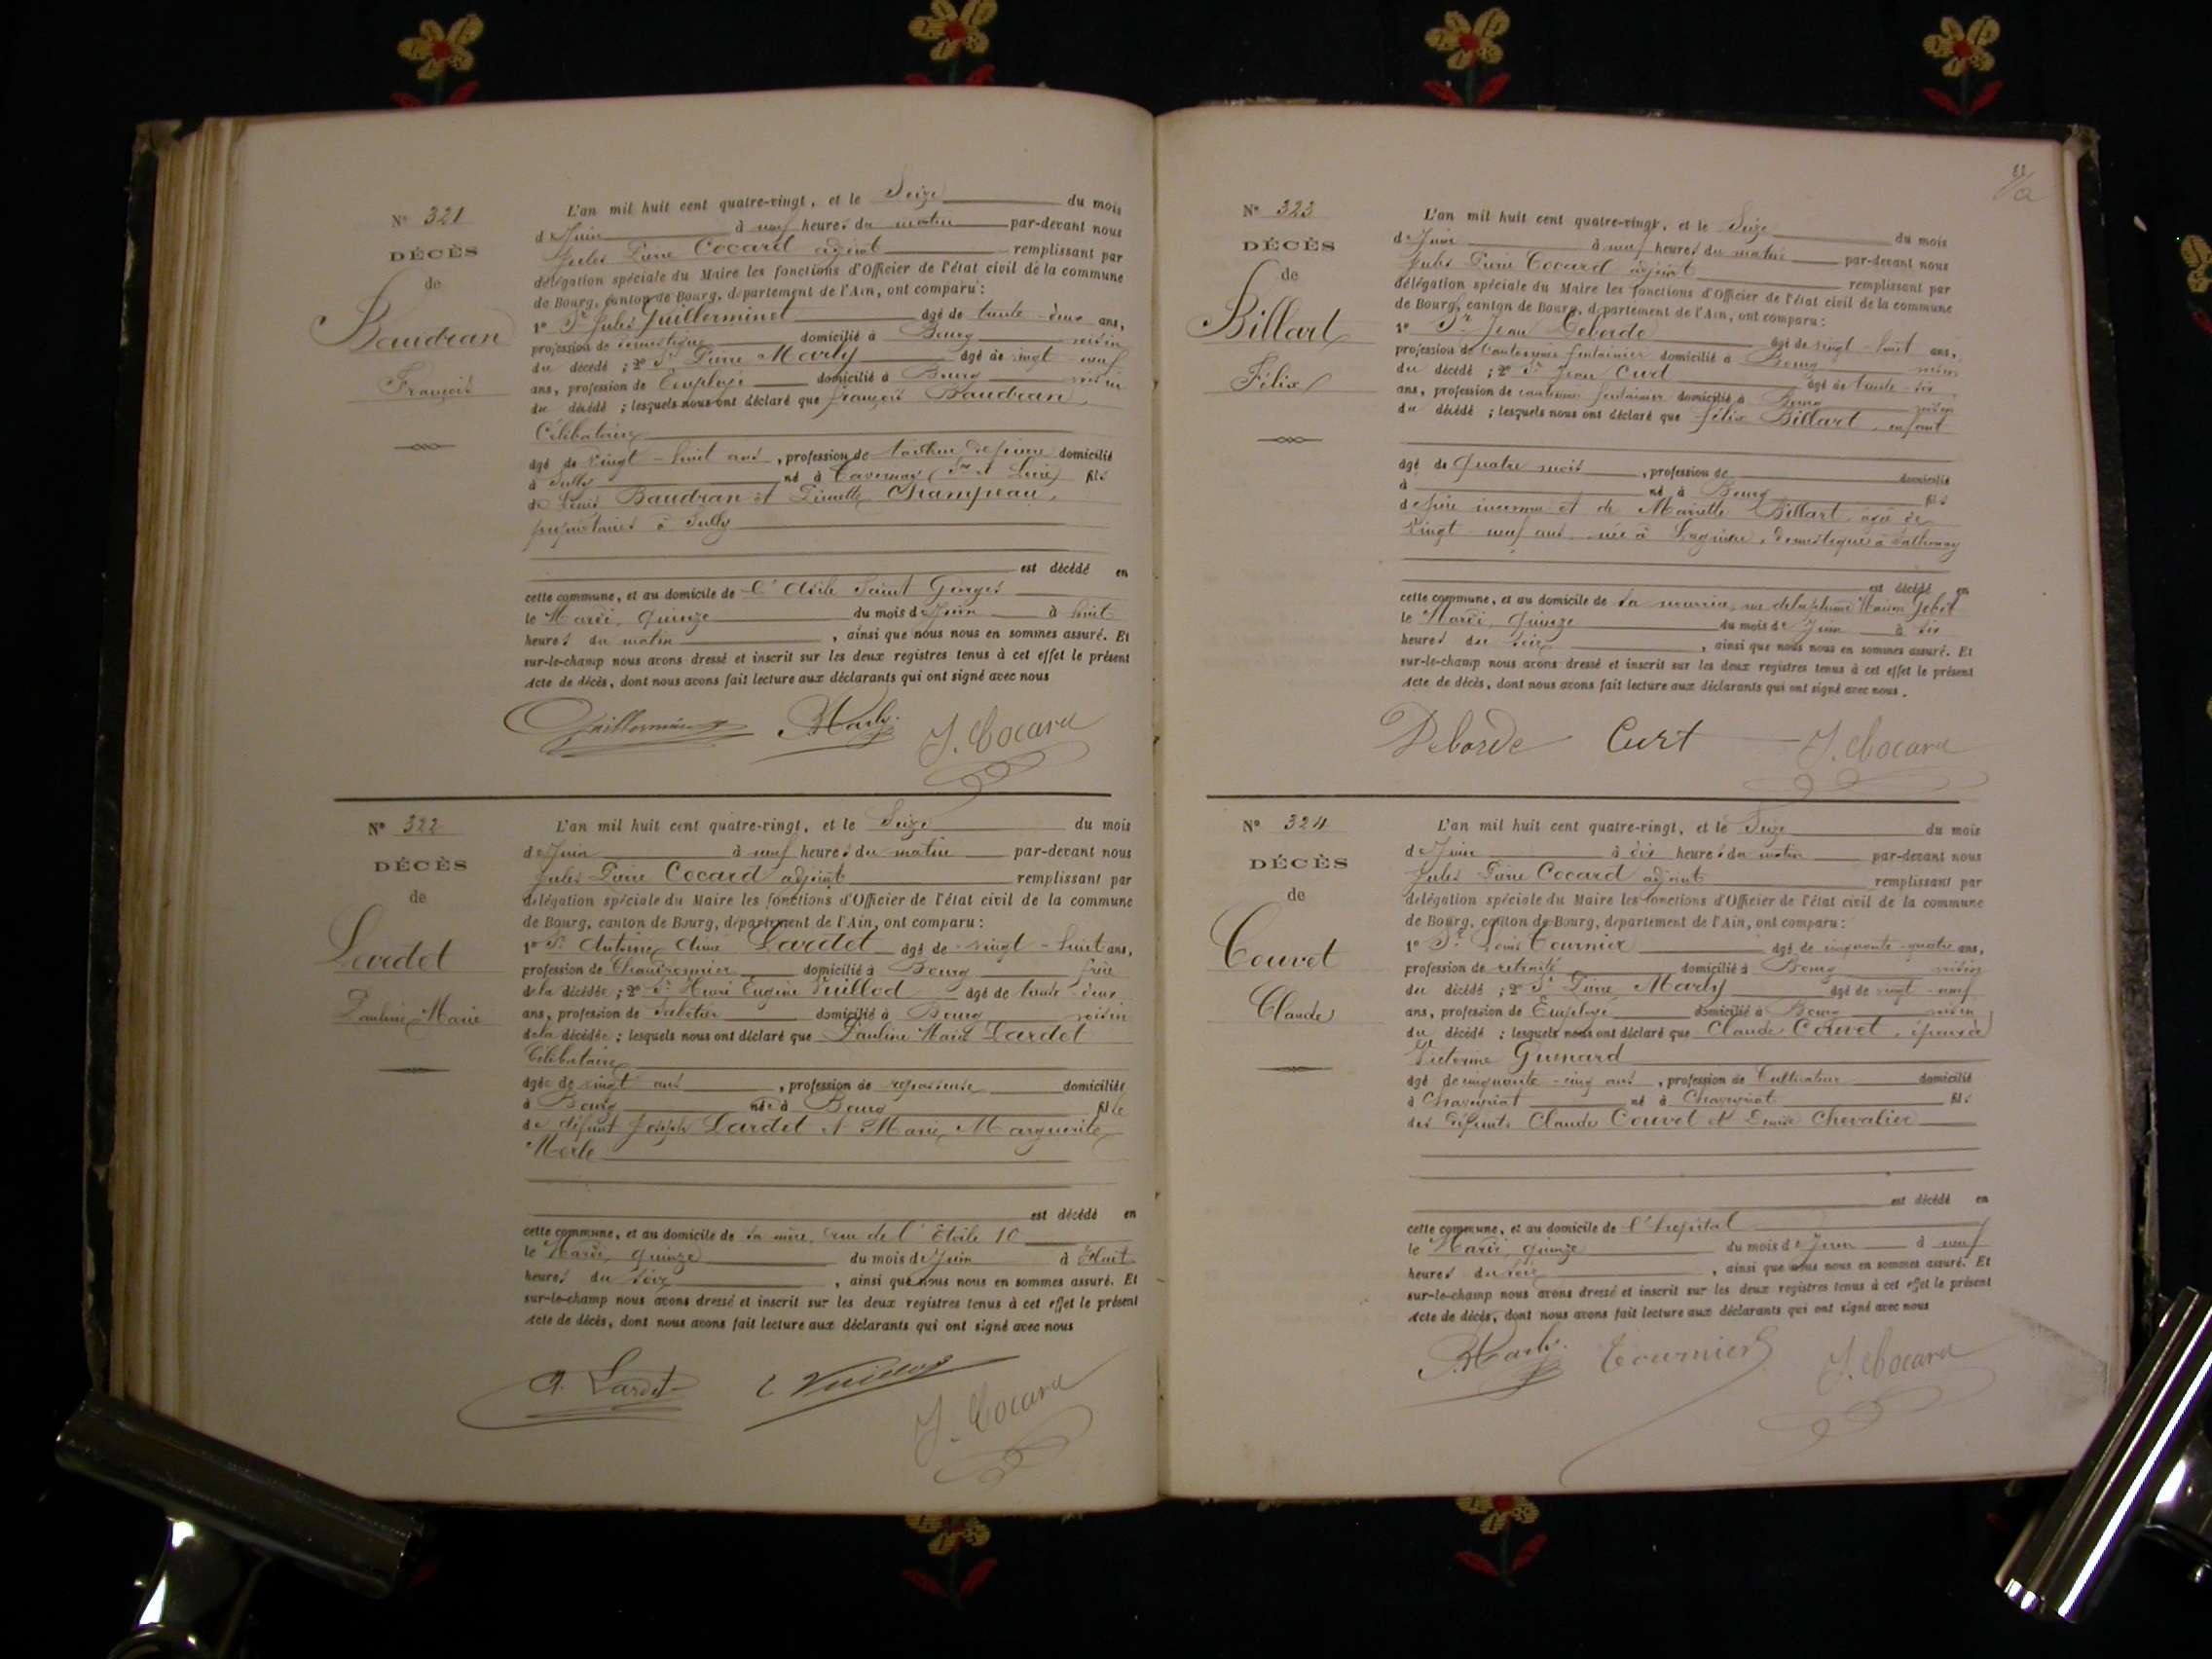 N° 321
DÉCÈS
de
Baudran
François
L'an mil huit cent quatre-vingt, et le Seize du mois
de Juin à neuf heures du matin par-devant nous
Jules Pierre Cocard adjoint remplissant par
délégation spéciale du Maire les fonctions d'Officier de l'état civil de la commune
de Bourg, canton de Bourg, département de l'Ain, ont comparu :
1° Sr Jules Guillerminet âgé de trente-deux ans,
profession de domestique domicilié à Bourg voisin
du décédé ; 2° Sr Pierre Marly âgé de vingt-neuf
ans, profession de Employé domicilié à Bourg voisin
du décédé ; lesquels nous ont déclaré que François Baudran,
Célibataire
âgé de vingt-huit ans, profession de de pierre domicilié
à Sully né à Tavernay (Sne et Loire) fils
de Louis Baudran et Pierrette Champeau,
propriétaires à Sully
est décédé en
cette commune, et au domicile de l'Asile Saint Georges
le Mardi, quinze du mois de Juin à huit
heures du matin, ainsi que nous nous en sommes assuré. Et
sur-le-champ nous avons dressé et inscrit sur les deux registres tenus à cet effet le présent
Acte de décès, dont nous avons fait lecture aux déclarants qui ont signé avec nous
Guillerminet P. Marly J. Cocard
N° 322
DÉCÈS
de
Lardet
Pauline Marie
L'an mil huit cent quatre-vingt, et le Seize du mois
de Juin à neuf heures du matin par-devant nous
Jules Pierre Cocard adjoint remplissant par
délégation spéciale du Maire les fonctions d'Officier de l'état civil de la commune
de Bourg, canton de Bourg, département de l'Ain, ont comparu :
1° Sr Antoine Aimé Lardet âgé de vingt-huit ans,
profession de Chaudronnier domicilié à Bourg frère
de la décédée ; 2° Sr Henri Eugène Vuillod âgé de trente-deux
ans, profession de Sabotier domicilié à Bourg voisin
de la décédée ; lesquels nous ont déclaré que Pauline Marie Lardet
Célibataire
âgée de vingt ans, profession de repasseuse domiciliée
à Bourg née à Bourg fille
de défunt Joseph Lardet et Marie Marguerite
Morle
est décédé en
cette commune, et au domicile de sa mère, rue de l'Etoile 10
le Mardi, quinze du mois de Juin à Huit
heures du soir, ainsi que nous nous en sommes assuré. Et
sur-le-champ nous avons dressé et inscrit sur les deux registres tenus à cet effet le présent
Acte de décès, dont nous avons fait lecture aux déclarants qui ont signé avec nous
A. Lardet E Vuillod J. Cocard
N° 323
DÉCÈS
de
Billart
Félix
L'an mil huit cent quatre-vingt, et le Seize du mois
de Juin à neuf heures du matin par-devant nous
Jules Pierre Cocard adjoint remplissant par
délégation spéciale du Maire les fonctions d'Officier de l'état civil de la commune
de Bourg, canton de Bourg, département de l'Ain, ont comparu :
1° Sr Jean Deborde âgé de vingt-huit ans,
profession de Cantonnier fontainier domicilié à Bourg voisin
du décédé ; 2° Sr Jean Curt âgé de trente-six
ans, profession de cantonnier fontainier domicilié à Bourg voisin
du décédé ; lesquels nous ont déclaré que Félix Billart, enfant
âgé de Quatre mois, profession de domicilié
à né à Bourg fils
de père inconnu et de Mariette Billart, âgée de
vingt-neuf ans, née à domestique à
est décédé en
cette commune, et au domicile de sa nourrice, rue de la plume Maison Gobet
le Mardi, quinze du mois de Juin à six
heures du soir, ainsi que nous nous en sommes assuré. Et
sur-le-champ nous avons dressé et inscrit sur les deux registres tenus à cet effet le présent
Acte de décès, dont nous avons fait lecture aux déclarants qui ont signé avec nous.
Deborde Curt J. Cocard
N° 324
DÉCÈS
de
Couvet
Claude
L'an mil huit cent quatre-vingt, et le Seize du mois
de Juin à dix heures du matin par-devant nous
Jules Pierre Cocard adjoint remplissant par
délégation spéciale du Maire les fonctions d'Officier de l'état civil de la commune
de Bourg, canton de Bourg, département de l'Ain, ont comparu :
1° Sr Louis Tournier âgé de cinquante-quatre ans,
profession de retraité domicilié à Bourg voisin
du décédé ; 2° Sr Pierre Marly âgé de vingt-neuf
ans, profession de Employé domicilié à Bourg voisin
du décédé ; lesquels nous ont déclaré que Claude Couvet, époux de
Victorine Guenard
âgé de cinquante-cinq ans, profession de Cultivateur domicilié
à Chavagnat né à Chavagnat fils
des défunts Claude Couvet et Denise Chevalier
est décédé en
cette commune, et au domicile de l'hopital
le Mardi, quinze du mois de Juin à neuf
heures du soir, ainsi que nous nous en sommes assuré. Et
sur-le-champ nous avons dressé et inscrit sur les deux registres tenus à cet effet le présent
Acte de décès, dont nous avons fait lecture aux déclarants qui ont signé avec nous
P. Marly Tournier J. Cocard